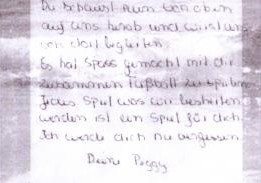 Du schaust nun von oben
auf uns herab und wirst uns
von dort begleiten.
Es hat Spass gemacht mit dir
zusammen Fußball zu spielen.
Jedes Spiel was wir bestreiten
werden ist ein Spiel für dich.
Ich werde dich nie vergessen.
Deine Peggy